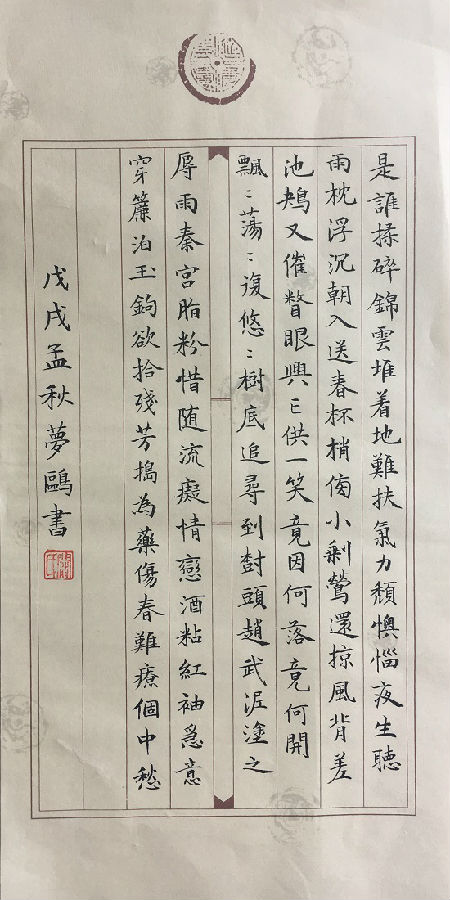 是誰揉碎錦雲堆着地難扶氣力頹懊惱夜生聽
雨枕浮沉朝入送春杯梢傍小剩鶯還掠風背差
池又催瞥眼興亡供一笑竟因何落竟何開
飄〻蕩〻復悠〻樹底追尋到樹頭趙武泥塗之
辱雨秦宮脂粉惜随流癡情戀酒粘紅袖急意
穿簾泊玉鉤欲拾殘芳搗為藥傷春難療個中愁
戊戌孟秋夢鷗書